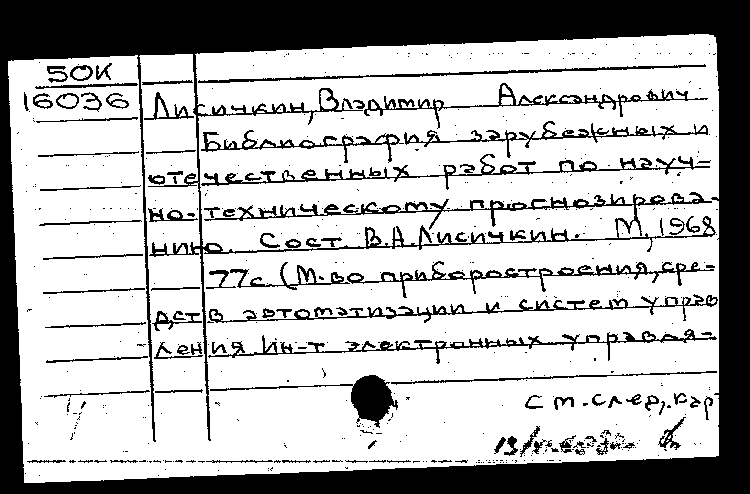 50К
16036
Лисичкин, Владимир Александрович
Библиография зарубежных и
отечественных работ по науч=
но-техническому прогнозирова-
нию. Сост В.А.Лисичкин. М, 1968
77с (М-во приборостроения, сре=
дств автоматизации и систем управ
ления Ин-т электронных управля=
см.след,.кар